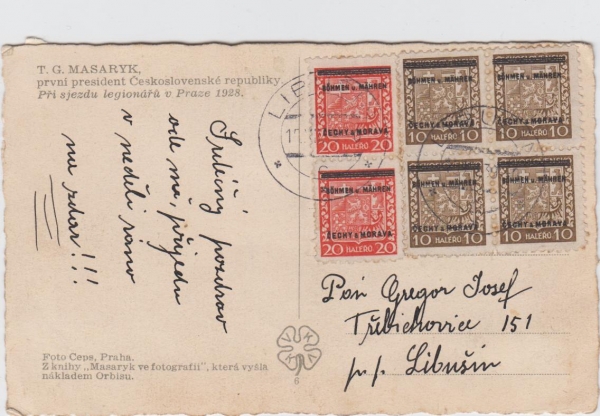 T. G. MASARYK,
první president Československé republiky.
Při sjezdu legionářů v Praze 1928.
Srdečný pozdrav
ode mě, přijedu
v neděli ráno
na zdar!!!
Foto Ceps, Praha.
Z knihy „Masaryk ve fotografii", která vyšla
nákladem Orbisu.
6
BÖHMEN u. MÄHREN
ČECHY a MORAVA
20 HALÉŘŮ 20
BÖHMEN u. MÄHREN
ČECHY a MORAVA
10 HALÉŘŮ 10
BÖHMEN u. MÄHREN
ČECHY a MORAVA
10 HALÉŘŮ 10
BÖHMEN u. MÄHREN
ČECHY a MORAVA
20 HALÉŘŮ 20
BÖHMEN u. MÄHREN
ČECHY a MORAVA
10 HALÉŘŮ 10
BÖHMEN u. MÄHREN
ČECHY a MORAVA
10 HALÉŘŮ 10
Pán Gregor Josef
Třebichovice 151
p.p. Libušín